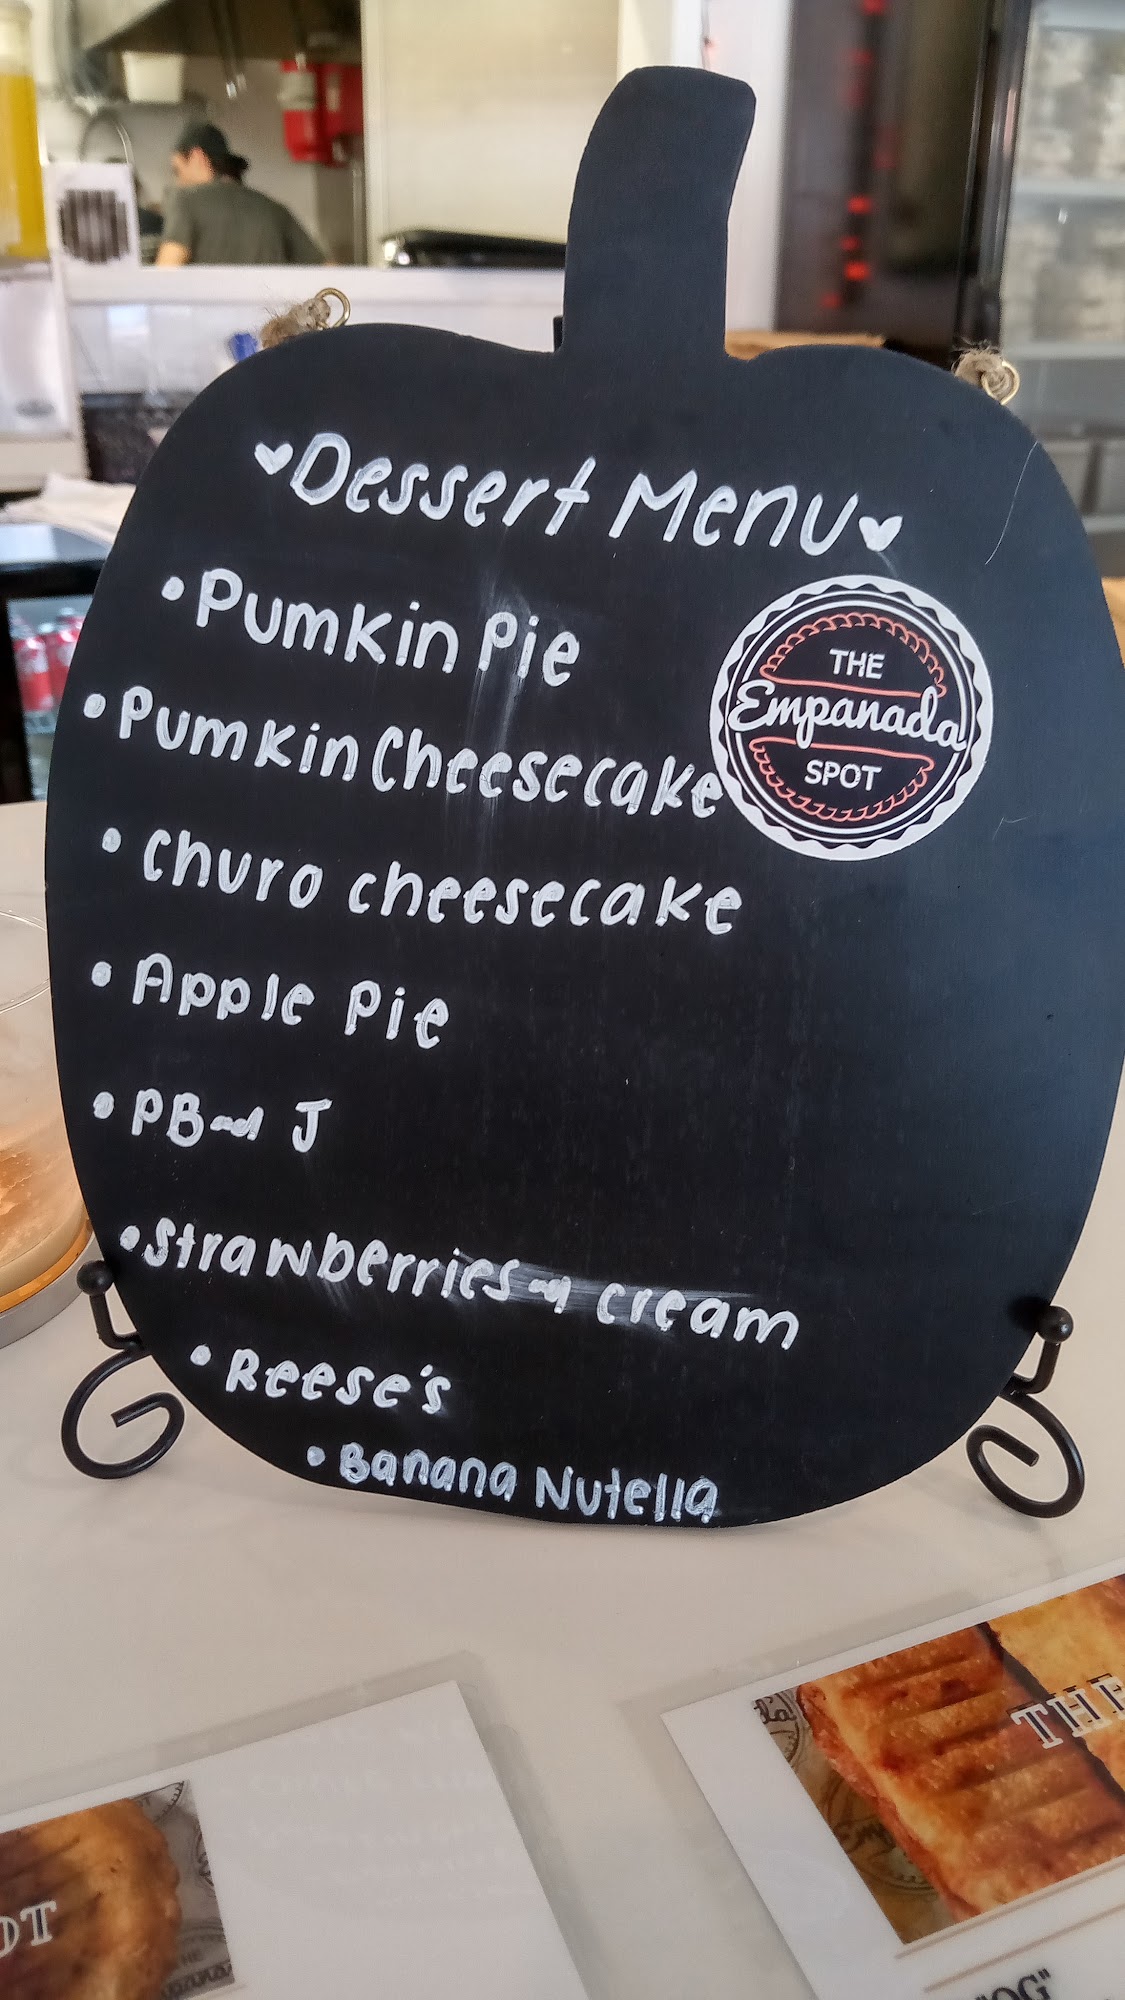 ♥Dessert Menu♥
• Pumkin Pie
• Pumkin Cheesecake
THE
Empanada
SPOT
• Churo cheesecake
• Apple Pie
• PB and J
• Strawberries and cream
• Reese's
• Banana Nutella
THE
OT
"OG"